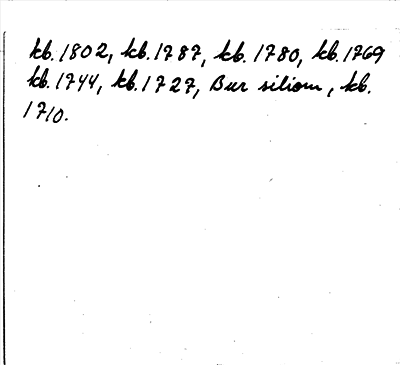 kb. 1802, kb. 1787, kb. 1780, kb. 1769
kb. 1744, kb. 1727, Bur siliom, kb.
1710.